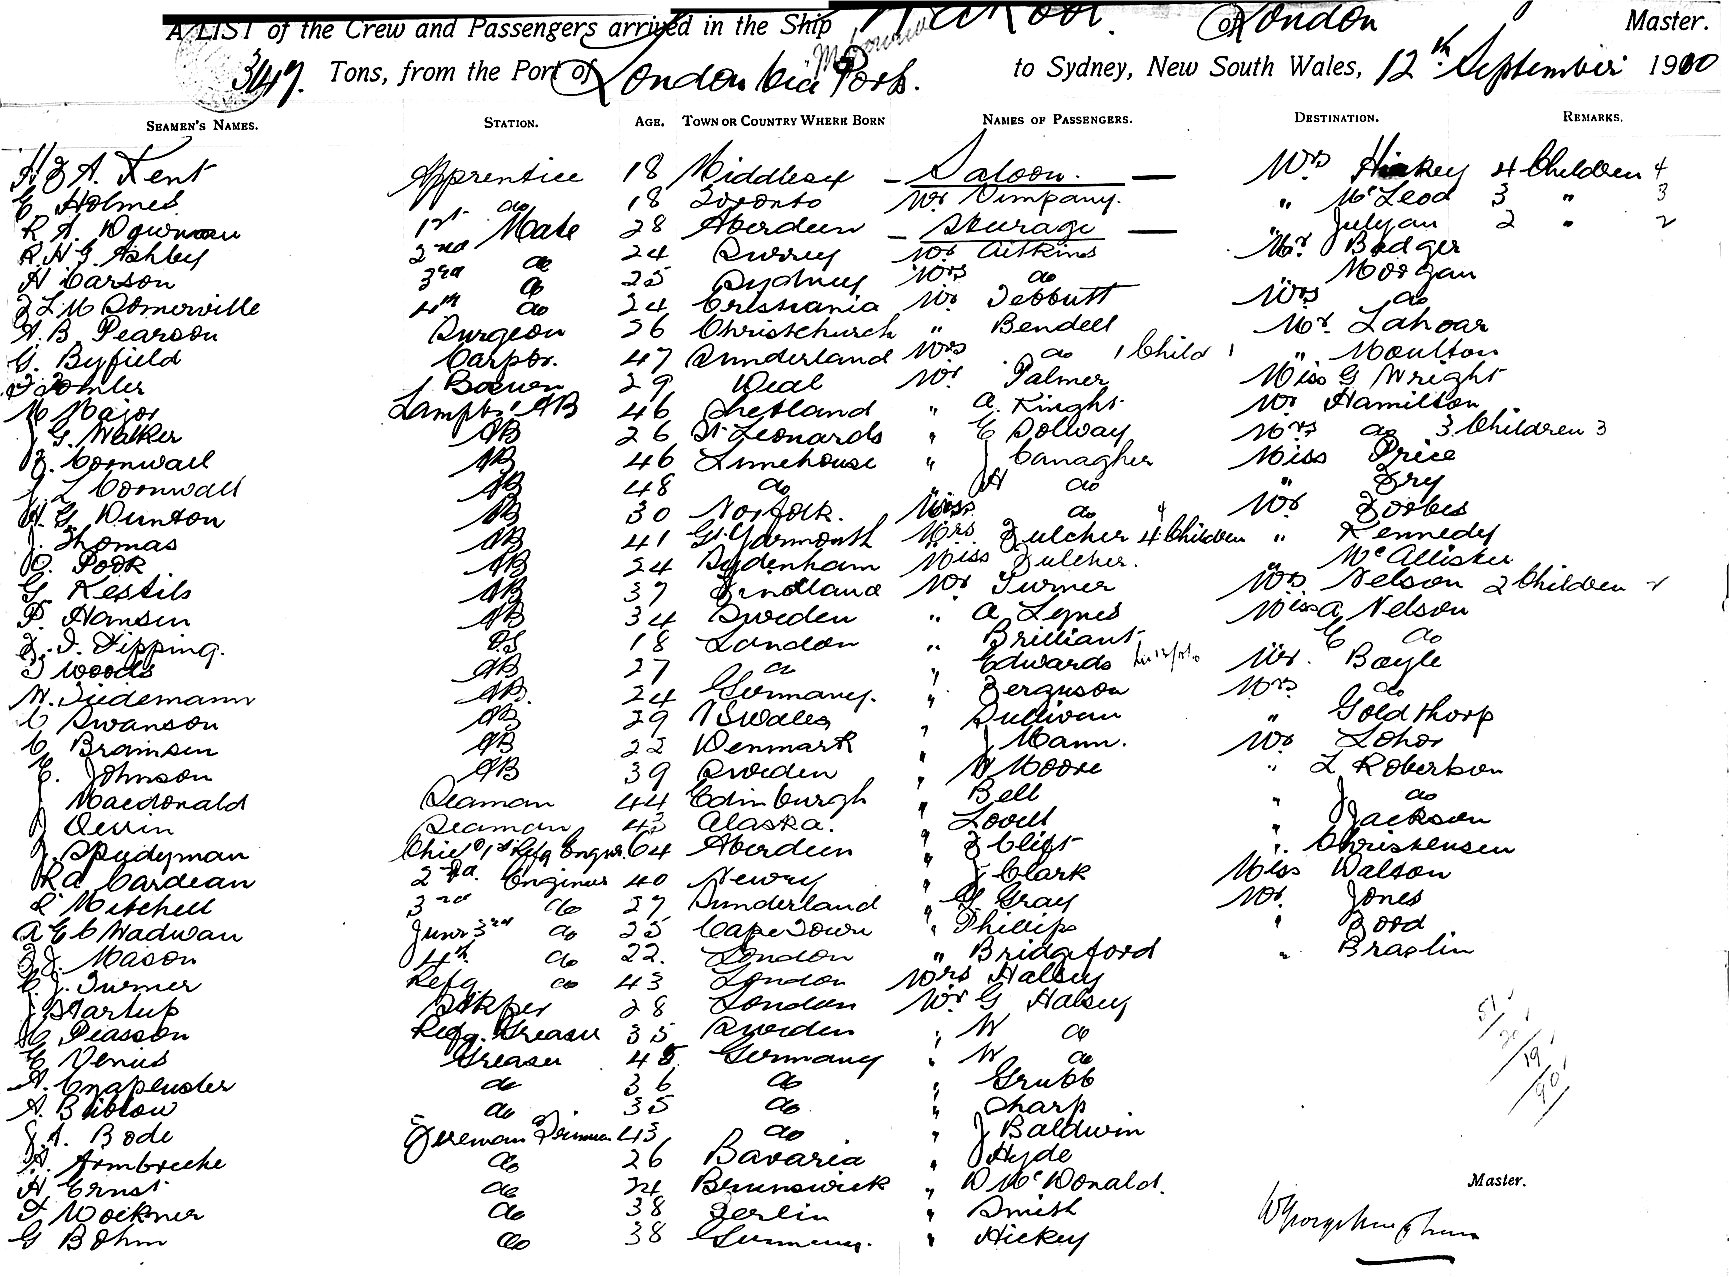 A LIST of the Crew and Passengers arrived in the Ship Wakool of London Master.
347. Tons, from the Port of London via Ports. to Sydney, New South Wales, 12th September 1900
SEAMEN'S NAMES. STATION. AGE. TOWN OR COUNTRY WHERE BORN NAMES OF PASSENGERS. DESTINATION. REMARKS.
A. Kent Apprentice 18 Middlesex Saloon. Mrs Hickey 4 Children 4
C Holmes do 18 Toronto Mr Vimpany. " McLeod 3 " 3
R A 1st Mate 28 Aberdeen Steerage " Julyan 2 " 2
R. H G Ashby 2nd do 24 Surrey Mr Aitkins Mr Badger
H Carson 3rd do 25 Sydney Mrs do Morgan
Somerville 4th do 24 Cristiania Mr Tebbutt Mrs do
A. B Pearson Surgeon 26 Christchurch " Bendell Mr. Lahoar
G. Byfield Carptr. 47 Sunderland Mrs do 1 Child 1 " Moulton
29 Deal Mr Palmer Miss G Wright
M Major Lamptr AB 46 Shetland " A. Knight Mr Hamilton
J G. Walker AB 26 St Leonards " E Solway Mrs do 3 Children 3
J. Cornwall AB 46 Limehouse " J Canagher Miss Price
J L Cornwall AB 48 do " H do " Fry
H. G. Dunton AB 30 Norfolk. Miss do Mr Forbes
J. Thomas AB 41 Gt Yarmouth Mrs. Fulcher 4 Children " Kennedy
Pook AB 24 Sydenham Miss Fulcher. " McAllister
G. Kestils AB 37 Findland Mr Turner Mrs. Nelson 2 Children 2
P. Hansen AB 34 Sweden " A Lynes Miss A Nelson
Tipping. OS 18 London " Brilliant E do
Woods AB 27 do " Edwards Mr. Boyle
W. Tiedemann AB. 24 Germany. " Ferguson Mrs do
C Swanson AB 29 N S Wales " Sullivan " Goldthorp
C. Bramsen AB 22 Denmark " J Mann. Mr Lohor
C. Johnson AB 39 Sweden " W Moore " L Robertson
J Macdonald Seaman 44 Edinburgh " Bell " J do
J Derrin Seaman 43 Alaska. " Lovell " Jackson
J. Spedyman Chief & 1st Refg Engnr. 64 Aberdeen " F Clift " Christensen
R. A. Cardean 2nd. Engineer 40 Newry " J Clark Miss Watson
R Mitchell 3rd do 27 Sunderland " G. Gray Mr. Jones
A E C Wadwan Junr 3rd do 25 Cape Town " Phillips " Bord
F. J. Mason 4th do 22. London " Bridgeford " Braslin
C. J. Turner Refg. do 43 London Mrs Halsey
J. Startup Stkper 28 London Mr G Halsey
C Peasson Refg. Greaser 35 Sweden " W do
C Venus Greaser 45 Germany " W do
A. do 36 do " Grubb
A. do 35 do " Sharp
J. A. Bode Fireman Trimmer 43 do " J Baldwin
A. Armbrecke do 26 Bavaria " Hyde
H Ernst do 24 Brunswick " D McDonald.
F Wockner do 38 Berlin " Smith
G Bohm do 38 Germany. " Hickey
51/20/19/90
Master.